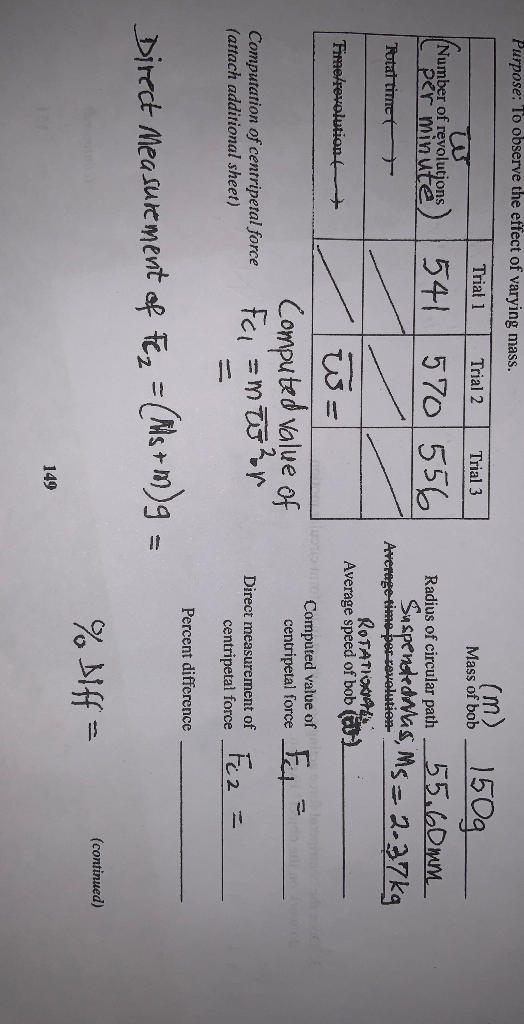 Purpose: To observe the effect of varying mass.
Trial 1 Trial 2 Trial 3
ω
(Number of revolutions per minute) 541 570 556
Total time ( )
Time/revolution ( ) ω̅ =
(m)
Mass of bob 150g
Radius of circular path 55.60mm
Suspended Mass, Ms = 2.37kg
Average time per revolution
ROTATIONAL
Average speed of bob (ω̅)
Computed value of
centripetal force Fc1 =
Direct measurement of
centripetal force Fc2 =
Percent difference
Computation of centripetal force
(attach additional sheet)
Computed value of
Fc1 = m ω̅²r
=
Direct Measurement of Fc2 = (Ms + m)g =
% Diff =
(continued)
149